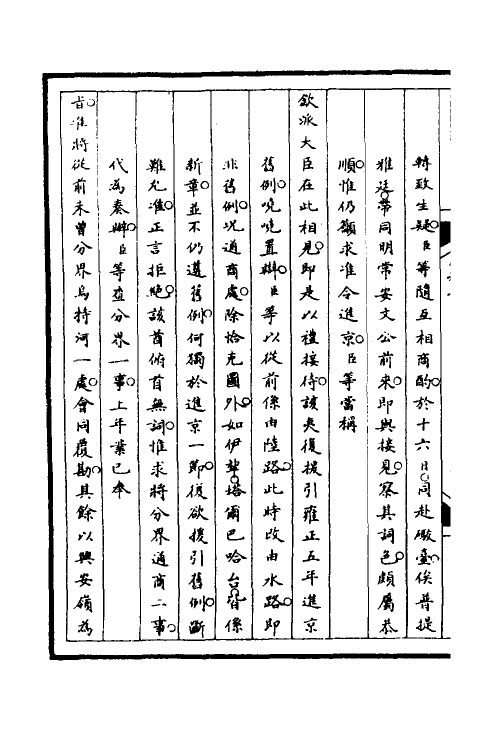 轉致生疑臣等隨互相商酌於十六日同赴礮臺俟普提
雅廷帶同明常安文公前來即與接見察其詞色頗屬恭
順惟仍籲求准令進京臣等當稱
欽派大臣在此相見即是以禮接待該夷復援引雍正五年進京
舊例嘵嘵置辯臣等以從前係由陸路此時改由水路即
非舊例况通商處除恰克圖外如伊犂塔爾巴哈台皆係
新章並不仍遵舊例何獨於進京一節復欲援引舊例斷
難允准正言拒絕該酋俯首無詞惟求將分界通商二事
代為奏辦臣等查分界一事上年業已奉
旨准將從前未曾分界烏特河一處會同覆勘其餘以興安嶺為